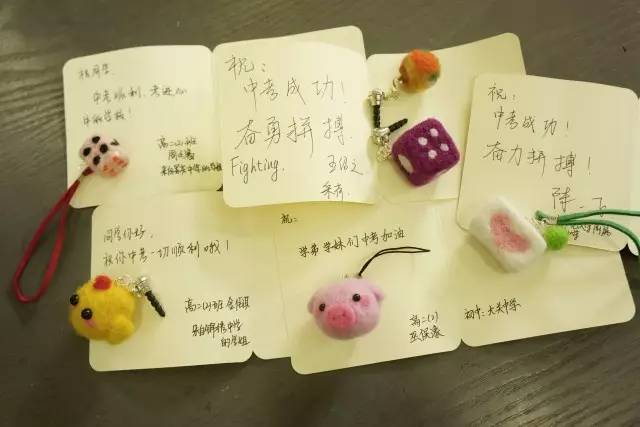 祝同学,
中考顺利,考进心
中的学校!
高二(2)班
祝:
中考成功!
奋勇拼搏
Fighting.
祝:
中考成功!
奋力拼搏!
陈
同学你好,
祝你中考一切顺利哦!
高二(2)班
来自
中学
的学姐
祝:
学弟学妹们中考加油
高二(2)
初中:大关中学